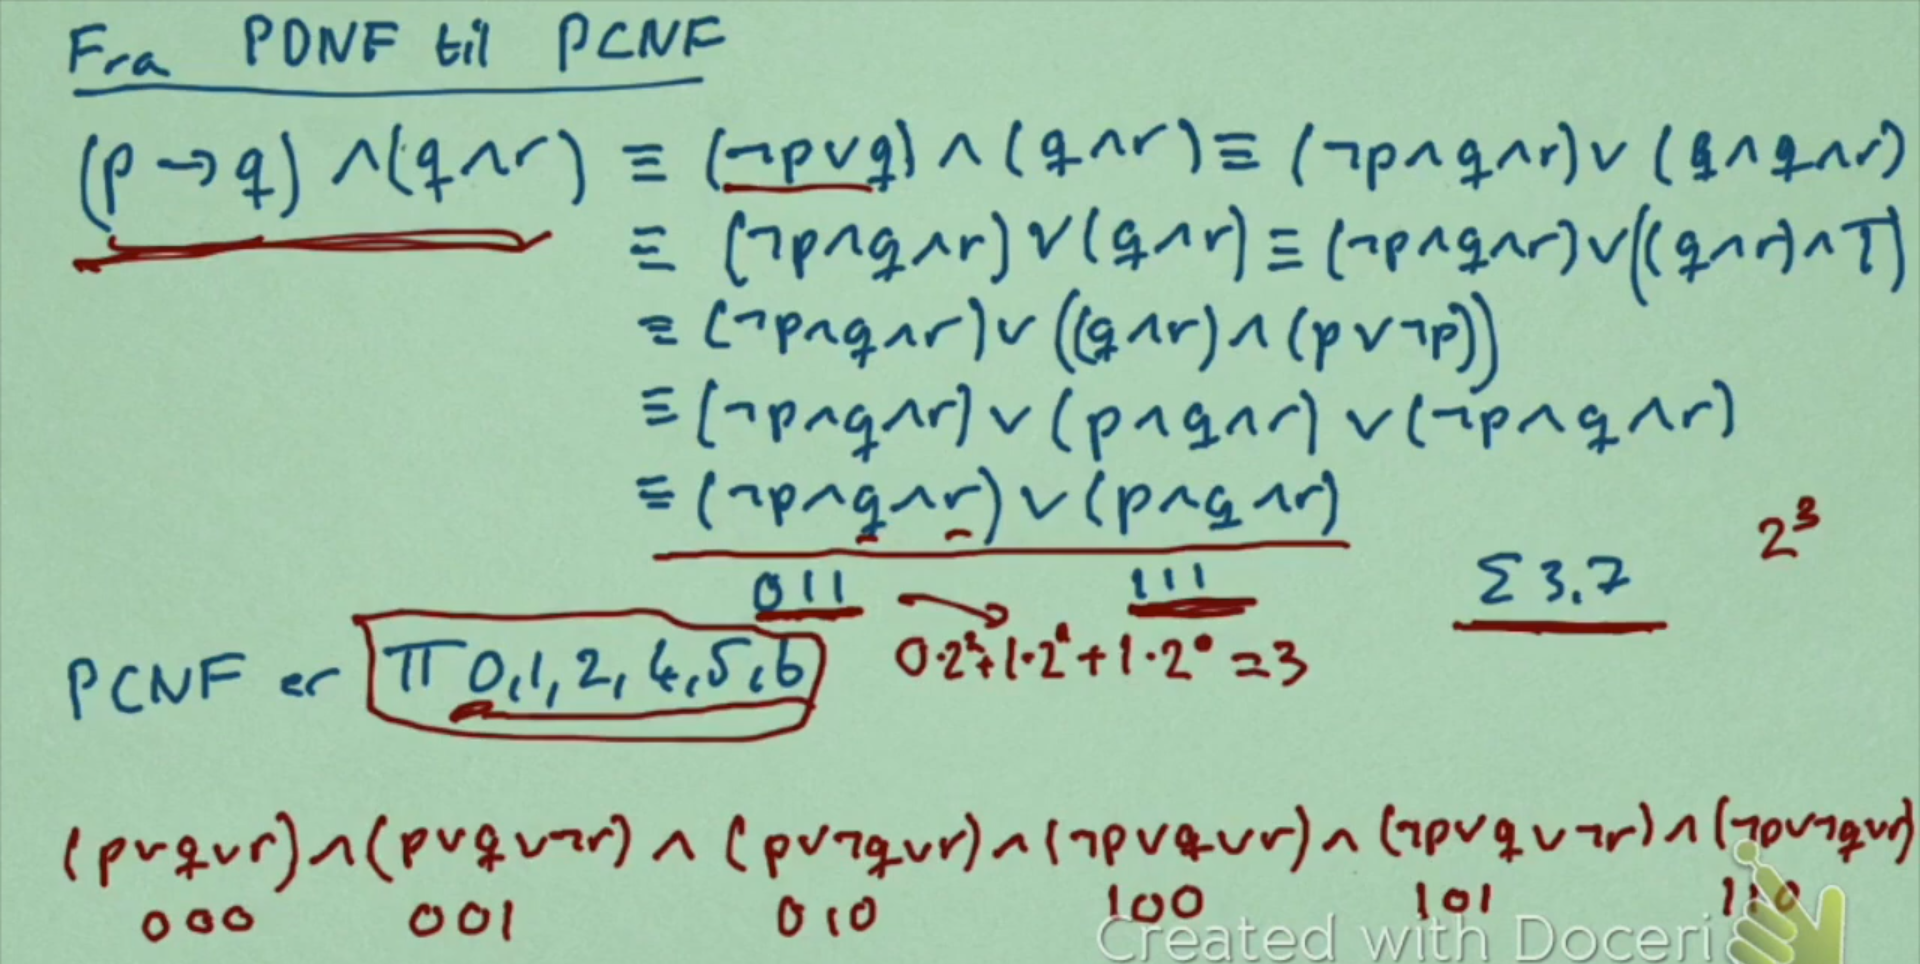 Fra PDNF til PCNF
(p → q) ∧ (q ∧ r) ≡ (¬p ∨ q) ∧ (q ∧ r) ≡ (¬p ∧ q ∧ r) ∨ (q ∧ q ∧ r)
≡ (¬p ∧ q ∧ r) ∨ (q ∧ r) ≡ (¬p ∧ q ∧ r) ∨ ((q ∧ r) ∧ T)
≡ (¬p ∧ q ∧ r) ∨ ((q ∧ r) ∧ (p ∨ ¬p))
≡ (¬p ∧ q ∧ r) ∨ (p ∧ q ∧ r) ∨ (¬p ∧ q ∧ r)
≡ (¬p ∧ q ∧ r) ∨ (p ∧ q ∧ r)
2³
011 111 Σ 3,7
PCNF er π 0,1,2,4,5,6 0·2²+1·2¹+1·2⁰ = 3
(p ∨ q ∨ r) ∧ (p ∨ q ∨ ¬r) ∧ (p ∨ ¬q ∨ r) ∧ (¬p ∨ q ∨ r) ∧ (¬p ∨ q ∨ ¬r) ∧ (¬p ∨ ¬q ∨ r)
000 001 010 100 101 110
Created with Doceri